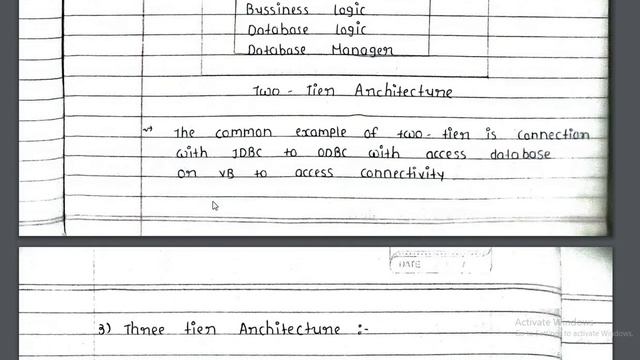 Bussiness Logic
Database Logic
Database Manager
Two - Tier Architecture
→ The common example of two - tier is connection
with JDBC to ODBC with access database
on VB to access connectivity
DATE
3) Three tier Architecture :-
Activate Windows
Go to Settings to activate Windows.